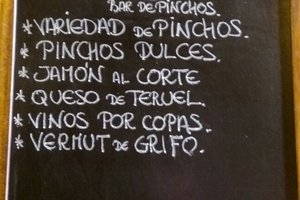 BAR DE PINCHOS.
* VARIEDAD DE PINCHOS.
* PINCHOS DULCES.
* JAMÓN AL CORTE
* QUESO DE TERUEL.
* VINOS POR COPAS.
* VERMUT DE GRIFO.